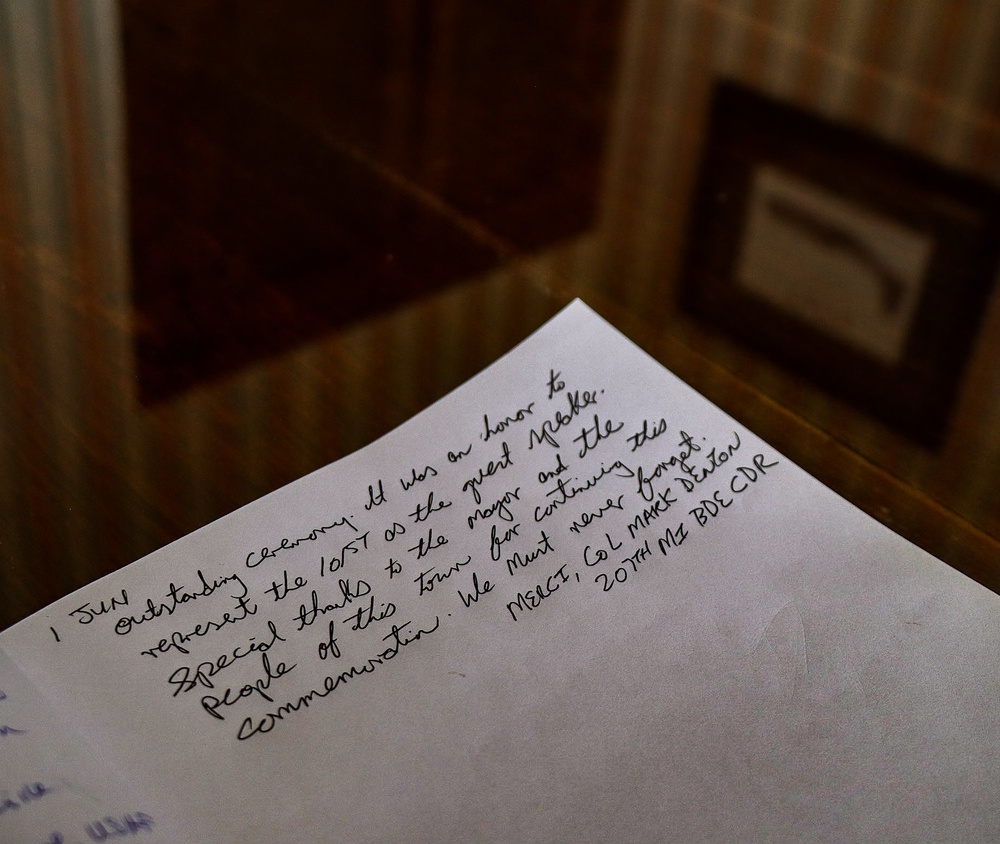 1 JUN
outstanding ceremony. It was an honor to
represent the 101ST as the guest speaker.
Special thanks to the mayor and the
people of this town for continuing this
commemoration. We must never forget.
MERCI, COL MARK DENTON
207TH MI BDE CDR
USAF